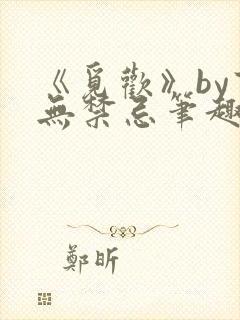 《覓歡》by
無禁忌筆趣
鄭昕